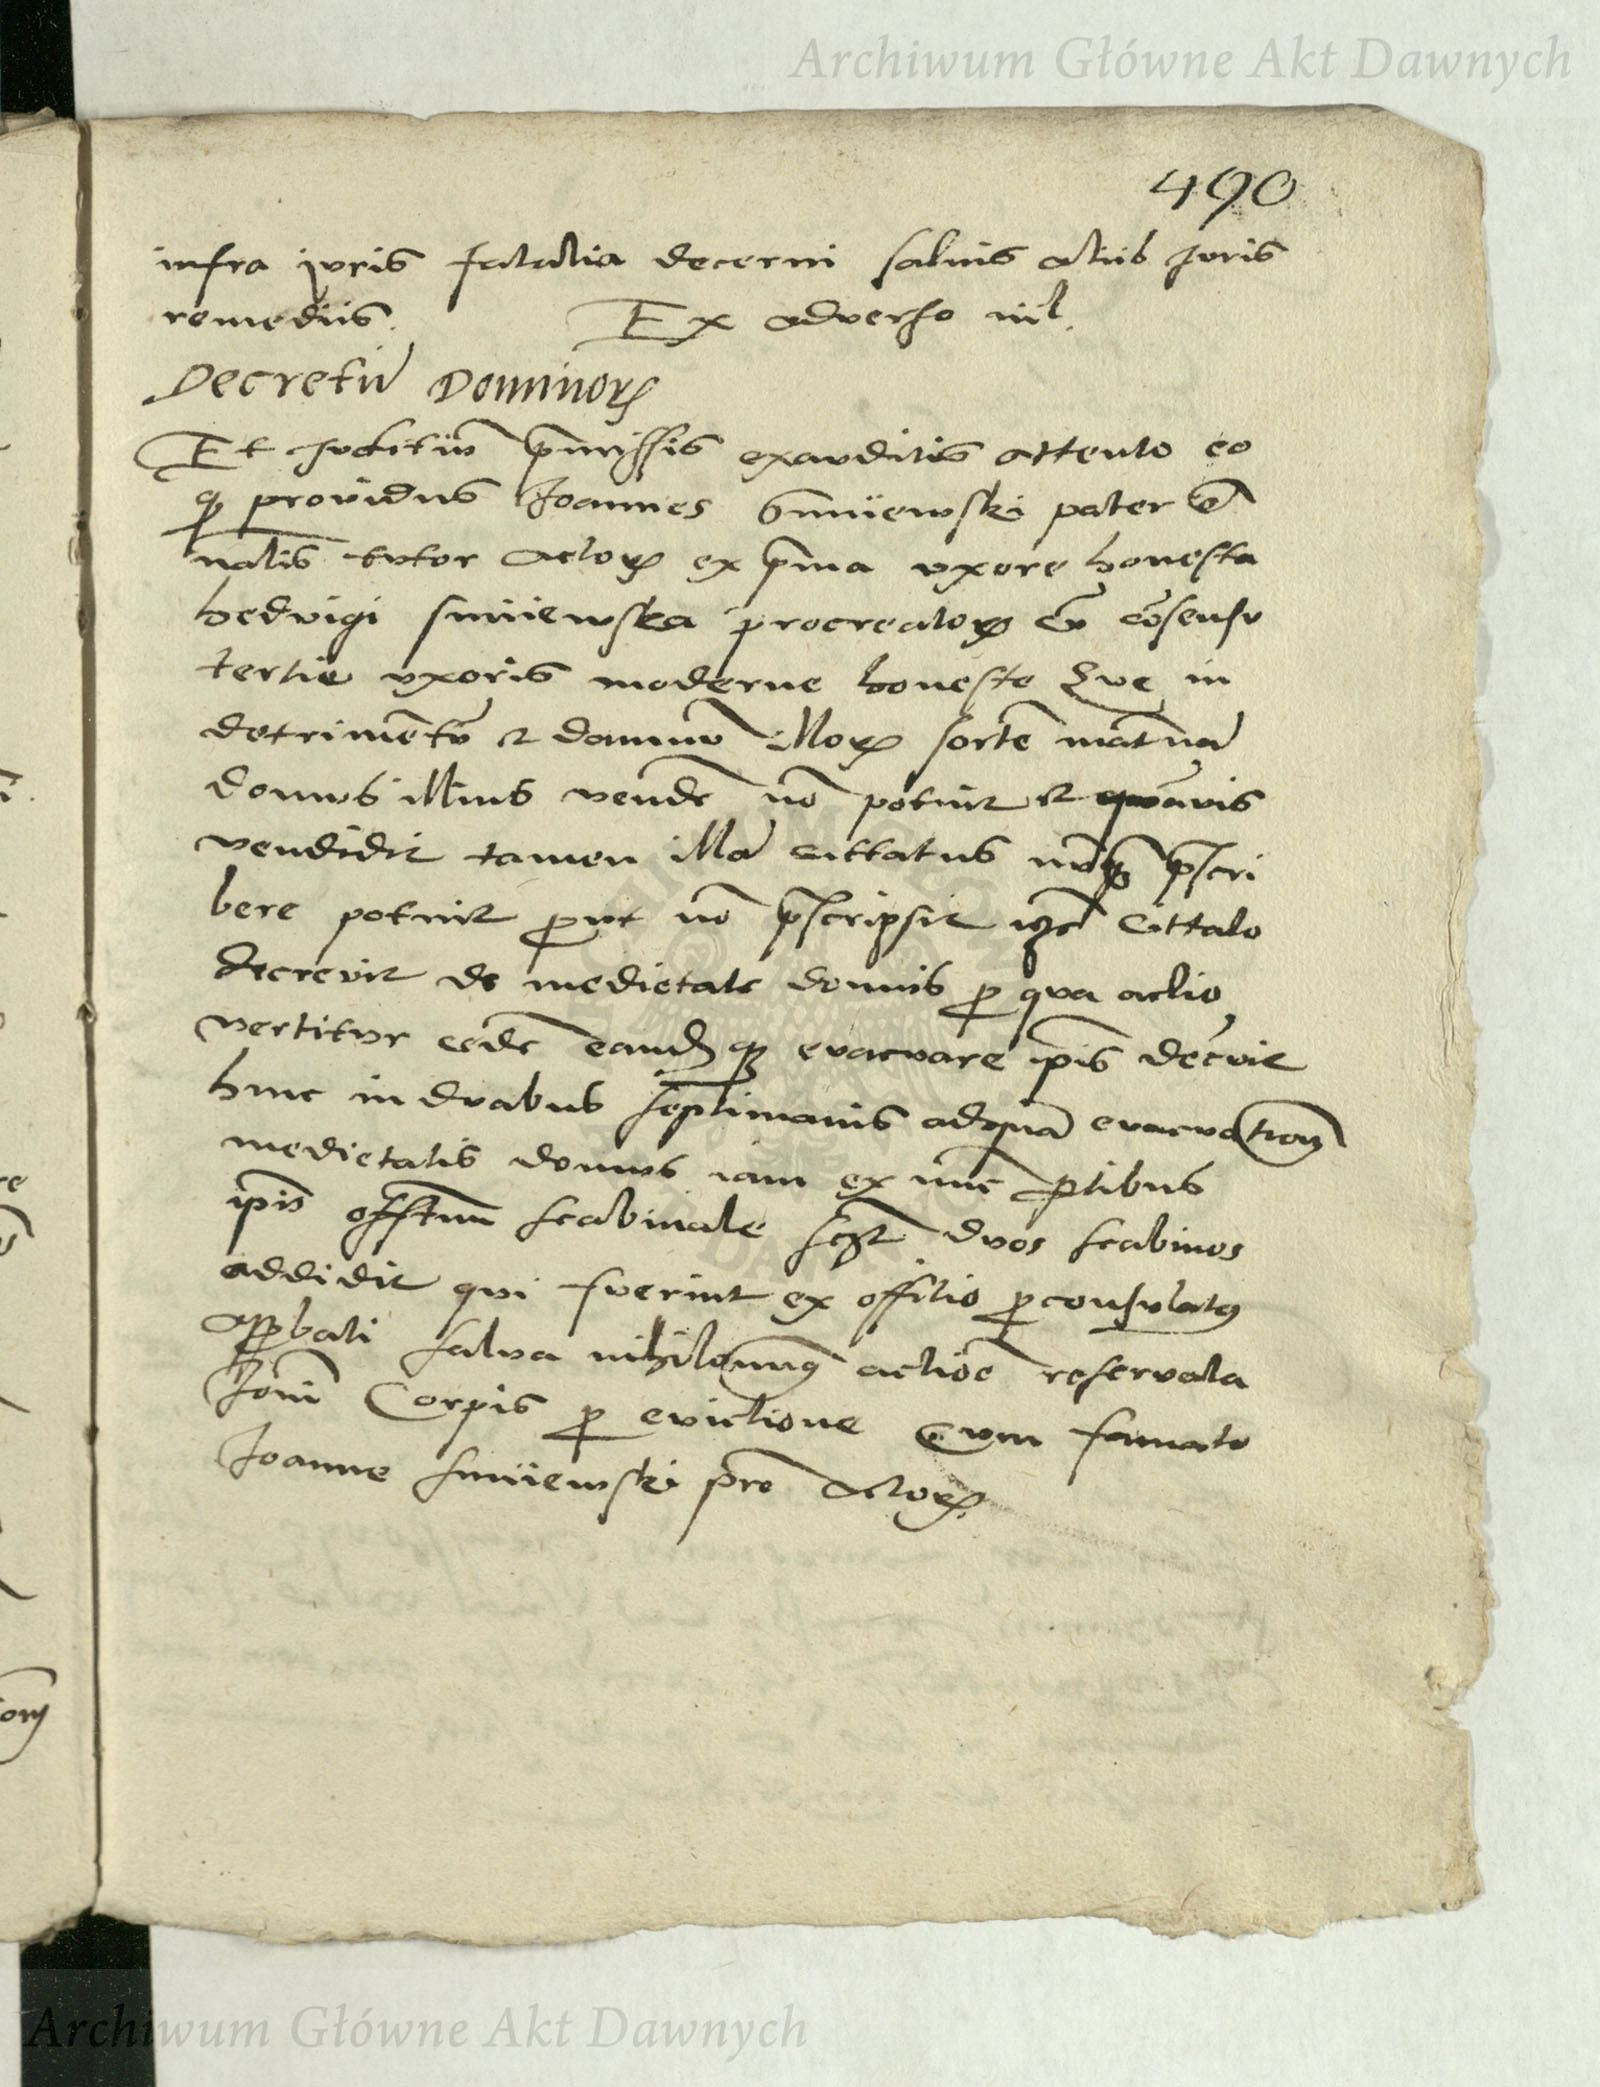 Archiwum Główne Akt Dawnych
490
infra juris fatalia decerni salvis aliis juris
remediis. Ex adverso nil.
Decretũ Dominoꝝ
Et Juditiũ p̃missis exauditis attento eo
qͩ providus Joannes Smiiewski pater et
nalis tutor actoꝝ ex p̃ma uxore honesta
hedvigi smiiewska procreatoꝝ cũ cõsensu
tertie uxoris moderne honeste Eve in
detrimẽtũ et damnũ illoꝝ sortẽ mat̃nã
domus illius vendẽ nõ potuit et quãvis
vendidit tamen illã cittatus nũqͣ p̃scri
bere potuit ꝓut nõ p̃scripsit cittato
decrevit de medietate domus ꝓ qua actio
vertitur cedẽ eandẽqꝫ evacuare ip̃is decvit
hinc in duabus septimanis ad quã evacuationẽ
medietatis domus iam ex nũc ꝑtibus
ip̃is offitiũ scabinale duos scabinos
addidit qui fuerint ex offitio ꝓconsulatus
apꝓbati salva nihilominus actiõe reservata
Joñi Corpis ꝓ evictione cum famato
Joanne smiiewski pr̃e Actoꝝ.
Archiwum Główne Akt Dawnych